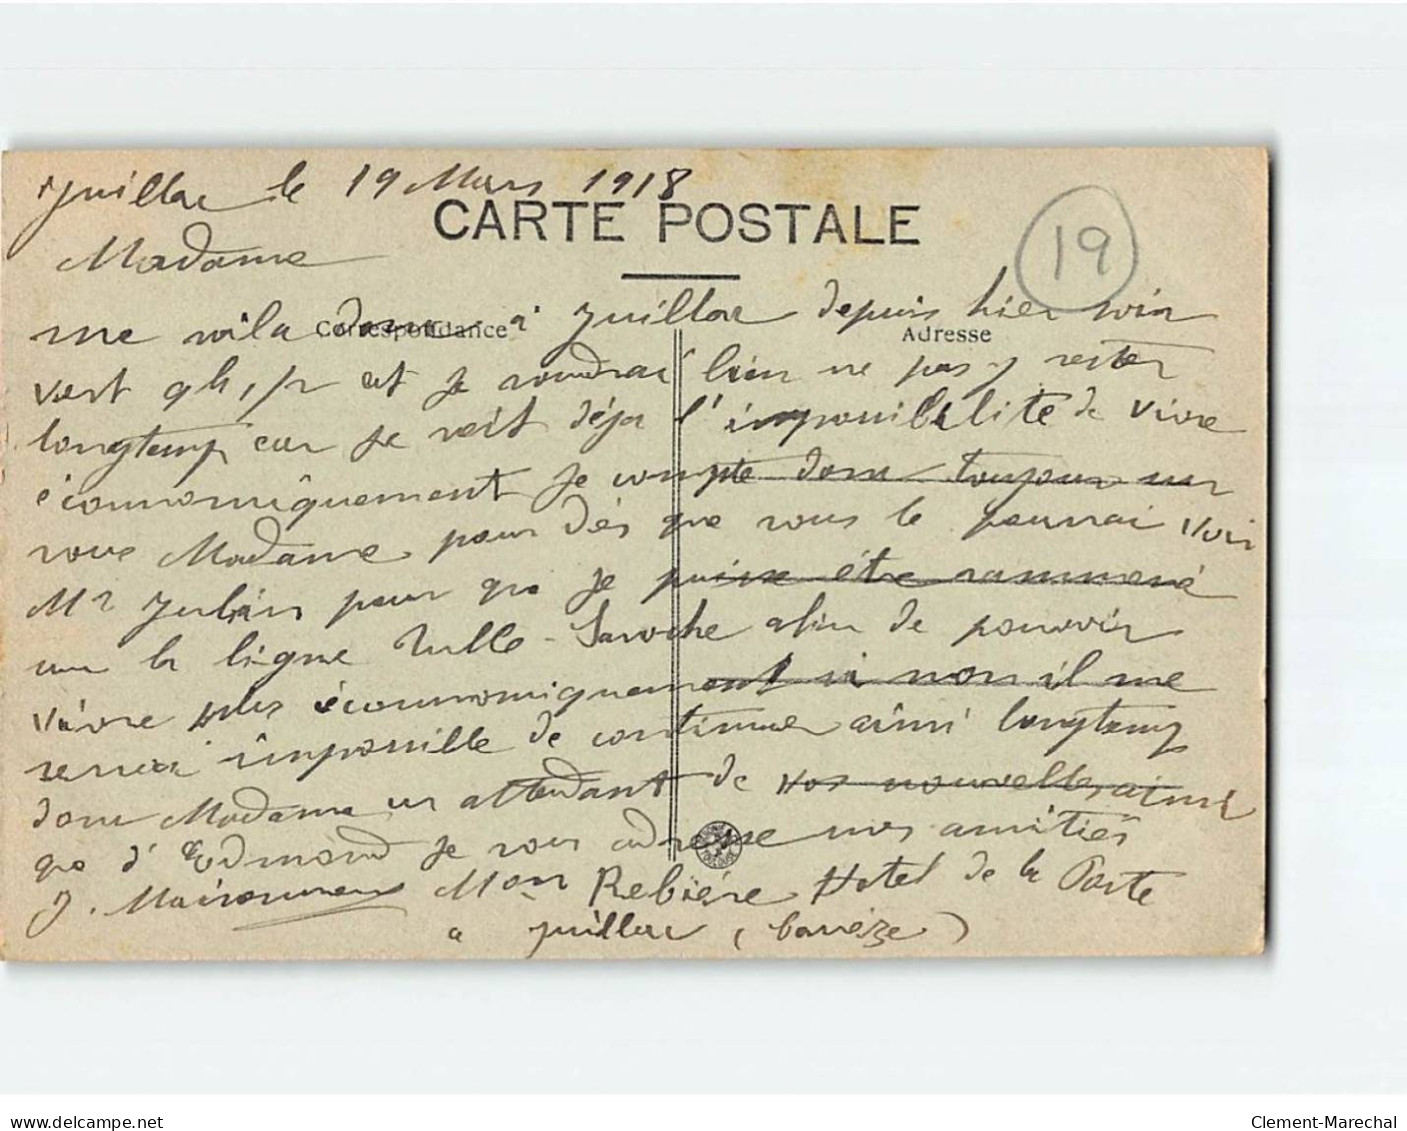 Juillac le 19 Mars 1918
CARTE POSTALE
19
Madame
Correspondance
Adresse
me voila donc à Juillac depuis hier soir
vert 9h 1/2 et je voudrai bien ne pas y rester
longtemp car je voit déja l'impossibilité de vivre
économiquement Je compte donc toujour sur
vous Madame pour dès que vous le pourrai voir
Mr Julien pour que je puisse être rammené
sur la ligne Tulle - Laroche afin de pouvoir
vivre plus économiquement si non il me
serrai impossible de continuer ainsi longtemp
donc Madame en attendant de vos nouvelles ainsi
que d'Edmond Je vous adresse mes amitiés
J. Maisonneux Mon Rebière Hotel de la Poste
a Juillac (Corrèze)
www.delcampe.net
Clement-Marechal